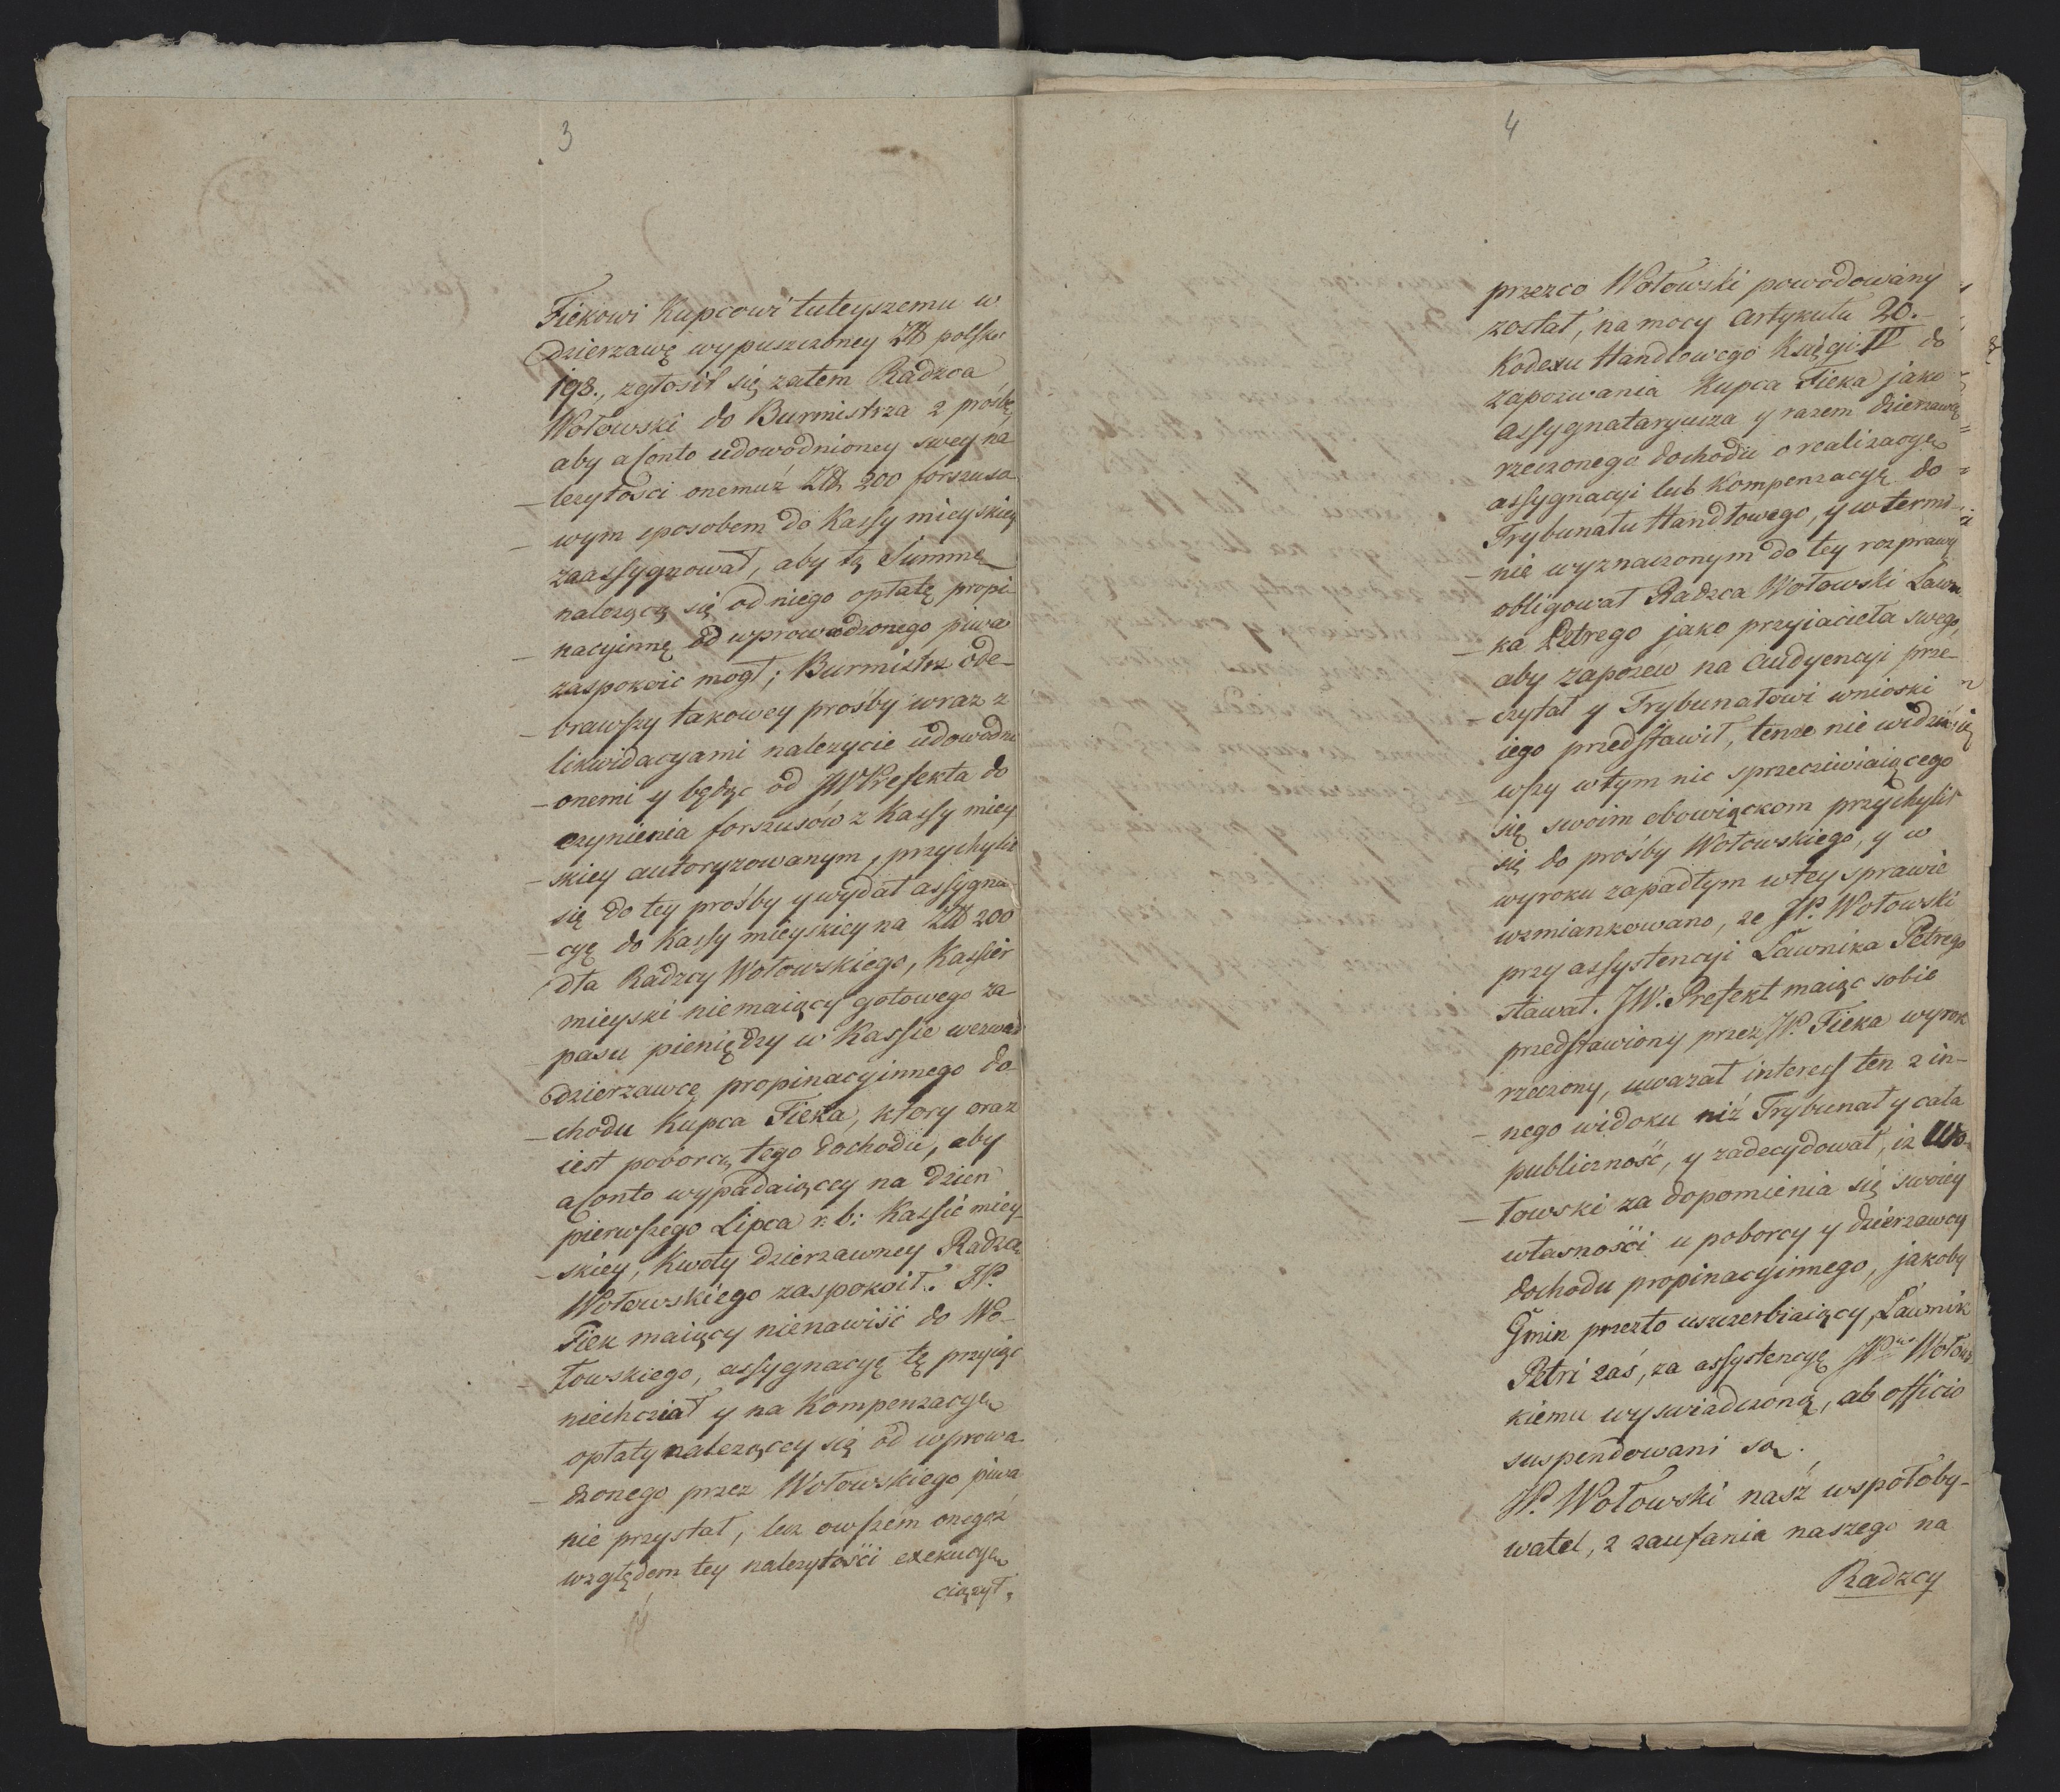 3
Fiekowi Kupcowi tuteyszemu w
dzierzawę wypuszczoney polskr
198., zgłosił się zatem Radzca
Wołowski do Burmistrza z prośbą,
aby a Conto udowodnioney swey na
-leżytości onemuż 200 forszuso
-wym sposobem do Kassy mieyskiey
zaassygnował, aby tą Summę
nalezącą się od niego opłatę propi-
-nacyinną od wprowadzonego piwa
zaspokoić mogł; Burmistrz ode-
-brawszy takowey prośby wraz z
likwidacyami nalezycie udowodni
-onemi y będąc od JWPrefekta do
czynienia forszusów z Kassy miey
-skiey autoryzowanym, przychylił
się do tey prośby y wydał assygna
-cyę do Kassy mieyskiey na 200
dla Radzcy Wołowskiego, Kassier
mieyski niemaiący gotowego za
-pasu pieniędzy w Kassie wezwał
dzierzawcę propinacyinnego do-
-chodu Kupca Fieka, ktory oraz
iest poborcą tego dochodu, aby
a Conto wypadaiącey na dzień
pierwszego Lipca r. b: Kassie miey-
-skiey, Kwoty dzierzawney Radzcę
Wołowskiego zaspokoił. JP.
Fiek maiący nienawiść do Wo-
-łowskiego, assygnacyę tę przyiąć
niechciał y na Kompenzacyę
opłaty nalezącey się od wprowa-
-dzonego przez Wołowskiego piwa
nie przystał, lecz owszem onegoż
względem tey nalezytości exekucyę
ciązył,
4
przezco Wołowski powodowany
został, na mocy Artykułu 20.-
Kodexu Handlowego Księgi IV do
zapozwania Kupca Fieka jako
assygnataryusza y razem dzierzawcę
rzeczonego dochodu o realizacyę
assygnacyi lub Kompenzacyę do
Trybunału Handlowego, y w termi-
-nie wyznaczonym do tey rozprawy
obligował Radzca Wołowski Ławni
-ka Petrego jako przyiaciela swego,
aby zapozew na Audyencyi prze-
-czytał y Trybunałowi wnioski
iego przedstawił, tenze nie widzia-
wszy w tym nic sprzeciwiaiącego
się swoim obowiązkom przychylił
się do prośby Wołowskiego, y w
wyroku zapadłym w tey sprawie
wzmiankowano, ze JP. Wołowski
przy assystencyi Ławnika Petrego
stawał. JW. Prefekt maiąc sobie
przedstawiony przez JP. Fieka wyrok
rzeczony, uwazał interess ten z in-
-nego widoku niż Trybunał y cała
publiczność, y zadecydował, iz Wo-
-łowski za dopomienia się swoiey
własności u poborcy y dzierzawcy
dochodu propinacyinnego, jakoby
Gmin przezto uszczerbiaiący, Ławnik
Petri zaś, za assystencyę Wołows
kiemu wyswiadczoną, ab officio
suspendowani są.
JP. Wołowski nasz wspołoby-
watel, z zaufania naszego na
Radzcy